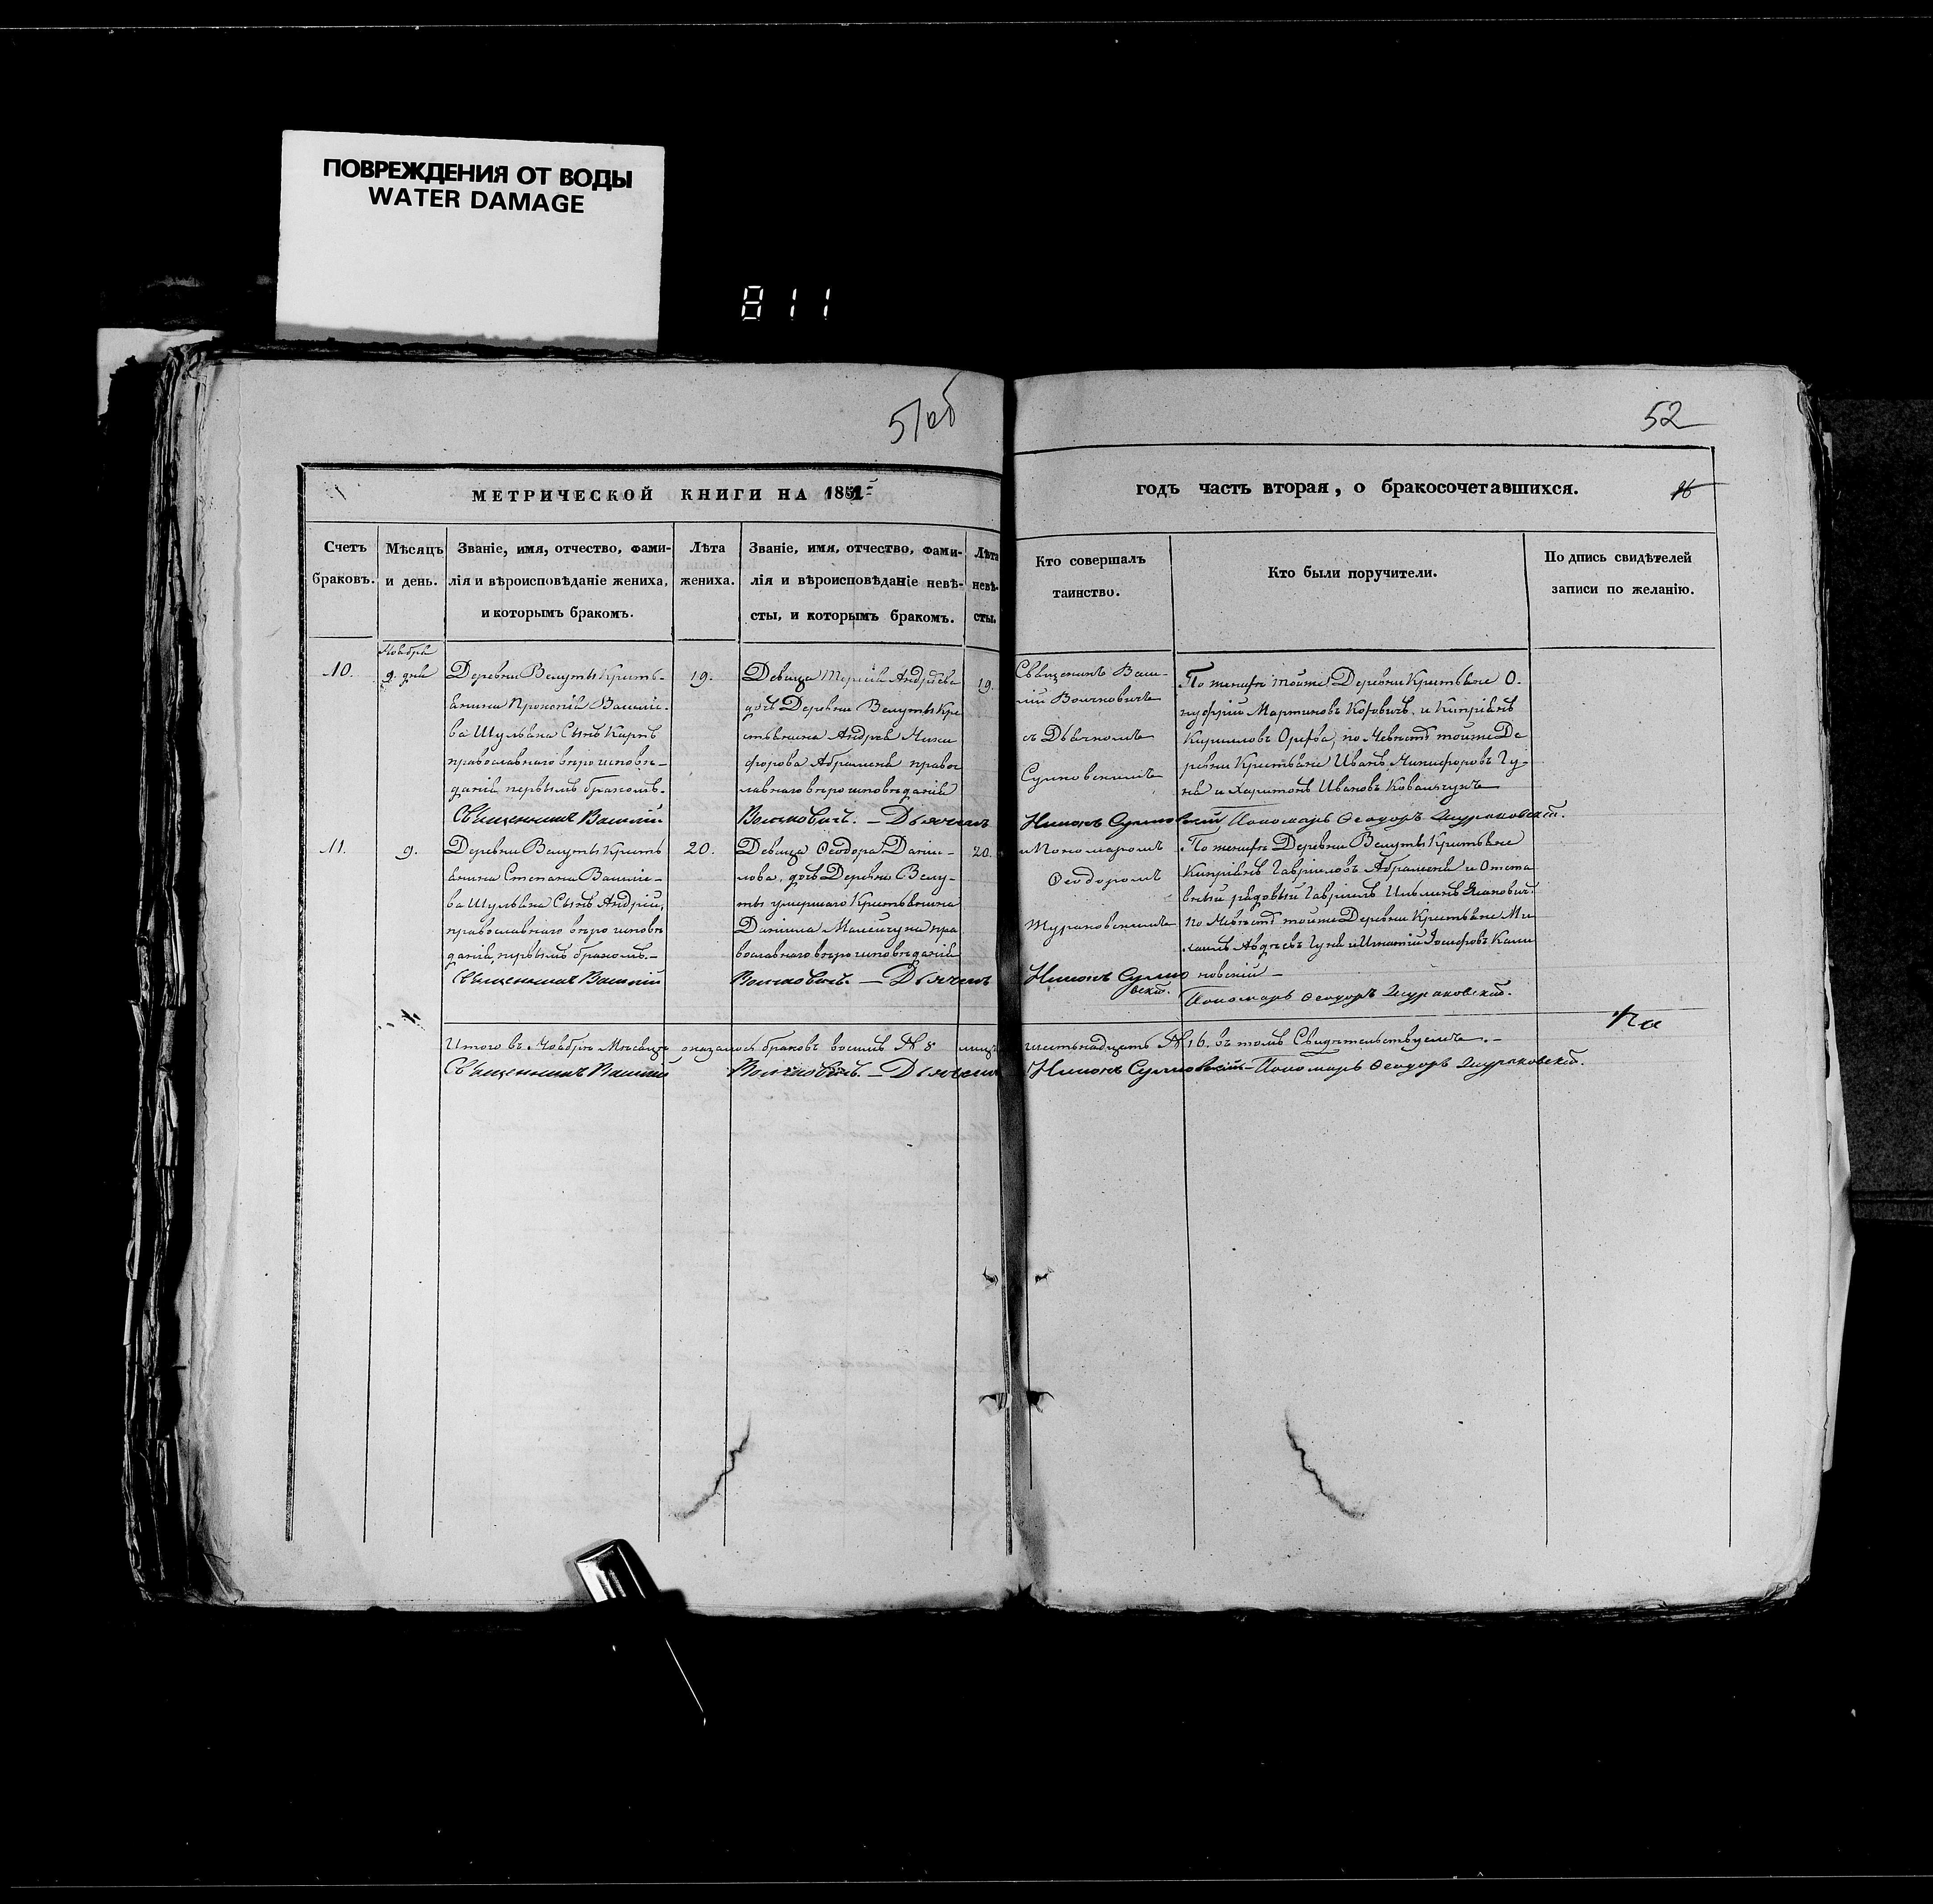 ПОВРЕЖДЕНИЯ ОТ ВОДЫ
WATER DAMAGE
811
51об
52
МЕТРИЧЕСКОЙ КНИГИ НА 1851
годъ часть вторая, о бракосочетавшихся.
16
Счетъ браковъ.
Мѣсяцъ и день.
Званіе, имя, отчество, фами-
лія и вѣроисповѣданіе жениха,
и которымъ бракомъ.
Лѣта
жениха.
Званіе, имя, отчество, фами-
лія и вѣроисповѣданіе невѣ-
сты, и которымъ бракомъ.
Лѣта
невѣ-
сты.
Кто совершалъ
таинство.
Кто были поручители.
По дпись свидѣтелей
записи по желанію.
10.
Ноября
9. дня
Деревни Велуты Кресть-
янина Прокопія Василіе-
ва Шульжка Сынъ Карпъ
православнаго вѣроисповѣ-
данія, первымъ бракомъ.
19.
Девица Андреева
дочь Деревни Велуты Кре
стьянина Андрея Ники
форова Абрамени правос
лавнаго вѣроисповѣданія
19.
Священникъ Васи-
лій Волчковичъ
съ Дьячкомъ
Сулковскимъ
По женихѣ тойже Деревни Крестьяне О-
нуфрій Мартиновъ и Кипріянъ
Кириловъ по Невѣстѣ тойже Де
ревни Крестьяне Иванъ Никифоровъ Гу-
ня и Харитонъ Ивановъ Ковальчукъ
Священникъ Василій Волчковичъ. — Дьячекъ Сулковскій Пономарь Ѳеодоръ Жураковскій.
11.
9.
Деревни Велуты Кресть
янина Степана Василіе-
ва Шульжка Сынъ Андрей,
православнаго вѣроисповѣ
данія, первымъ бракомъ.—
20.
Девица Ѳеодора Дани-
лова, дочь Деревни Велу-
ты умершаго Крестьянина
Даніила пра
вославнаго вѣроисповѣданія
20.
и Пономаромъ
Ѳеодоромъ
Жураковскимъ
По женихѣ Деревни Велуты Крестьяне
Кипріянъ Гавриловъ Абраменя и Отста
вный рядовый Гавріилъ Ильинъ
по Невѣстѣ тойже Деревни Крестьяне Ми
хаилъ Авдѣевъ Гуня и Игнатій Іосифовъ Кали
новскій —
Священникъ Василій Волчковичъ. — Дьячекъ Сулковскій.
Пономарь Ѳеодоръ Жураковскій.
Итого въ Ноябрѣ Мѣсяцѣ оказалося браковъ восемь № 8 лицъ шестьнадцать № 16. въ томъ Свидѣтельствуемъ. —
Священникъ Василій Волчковичъ. — Дьячекъ Сулковскій — Пономарь Ѳеодоръ Жураковскій.